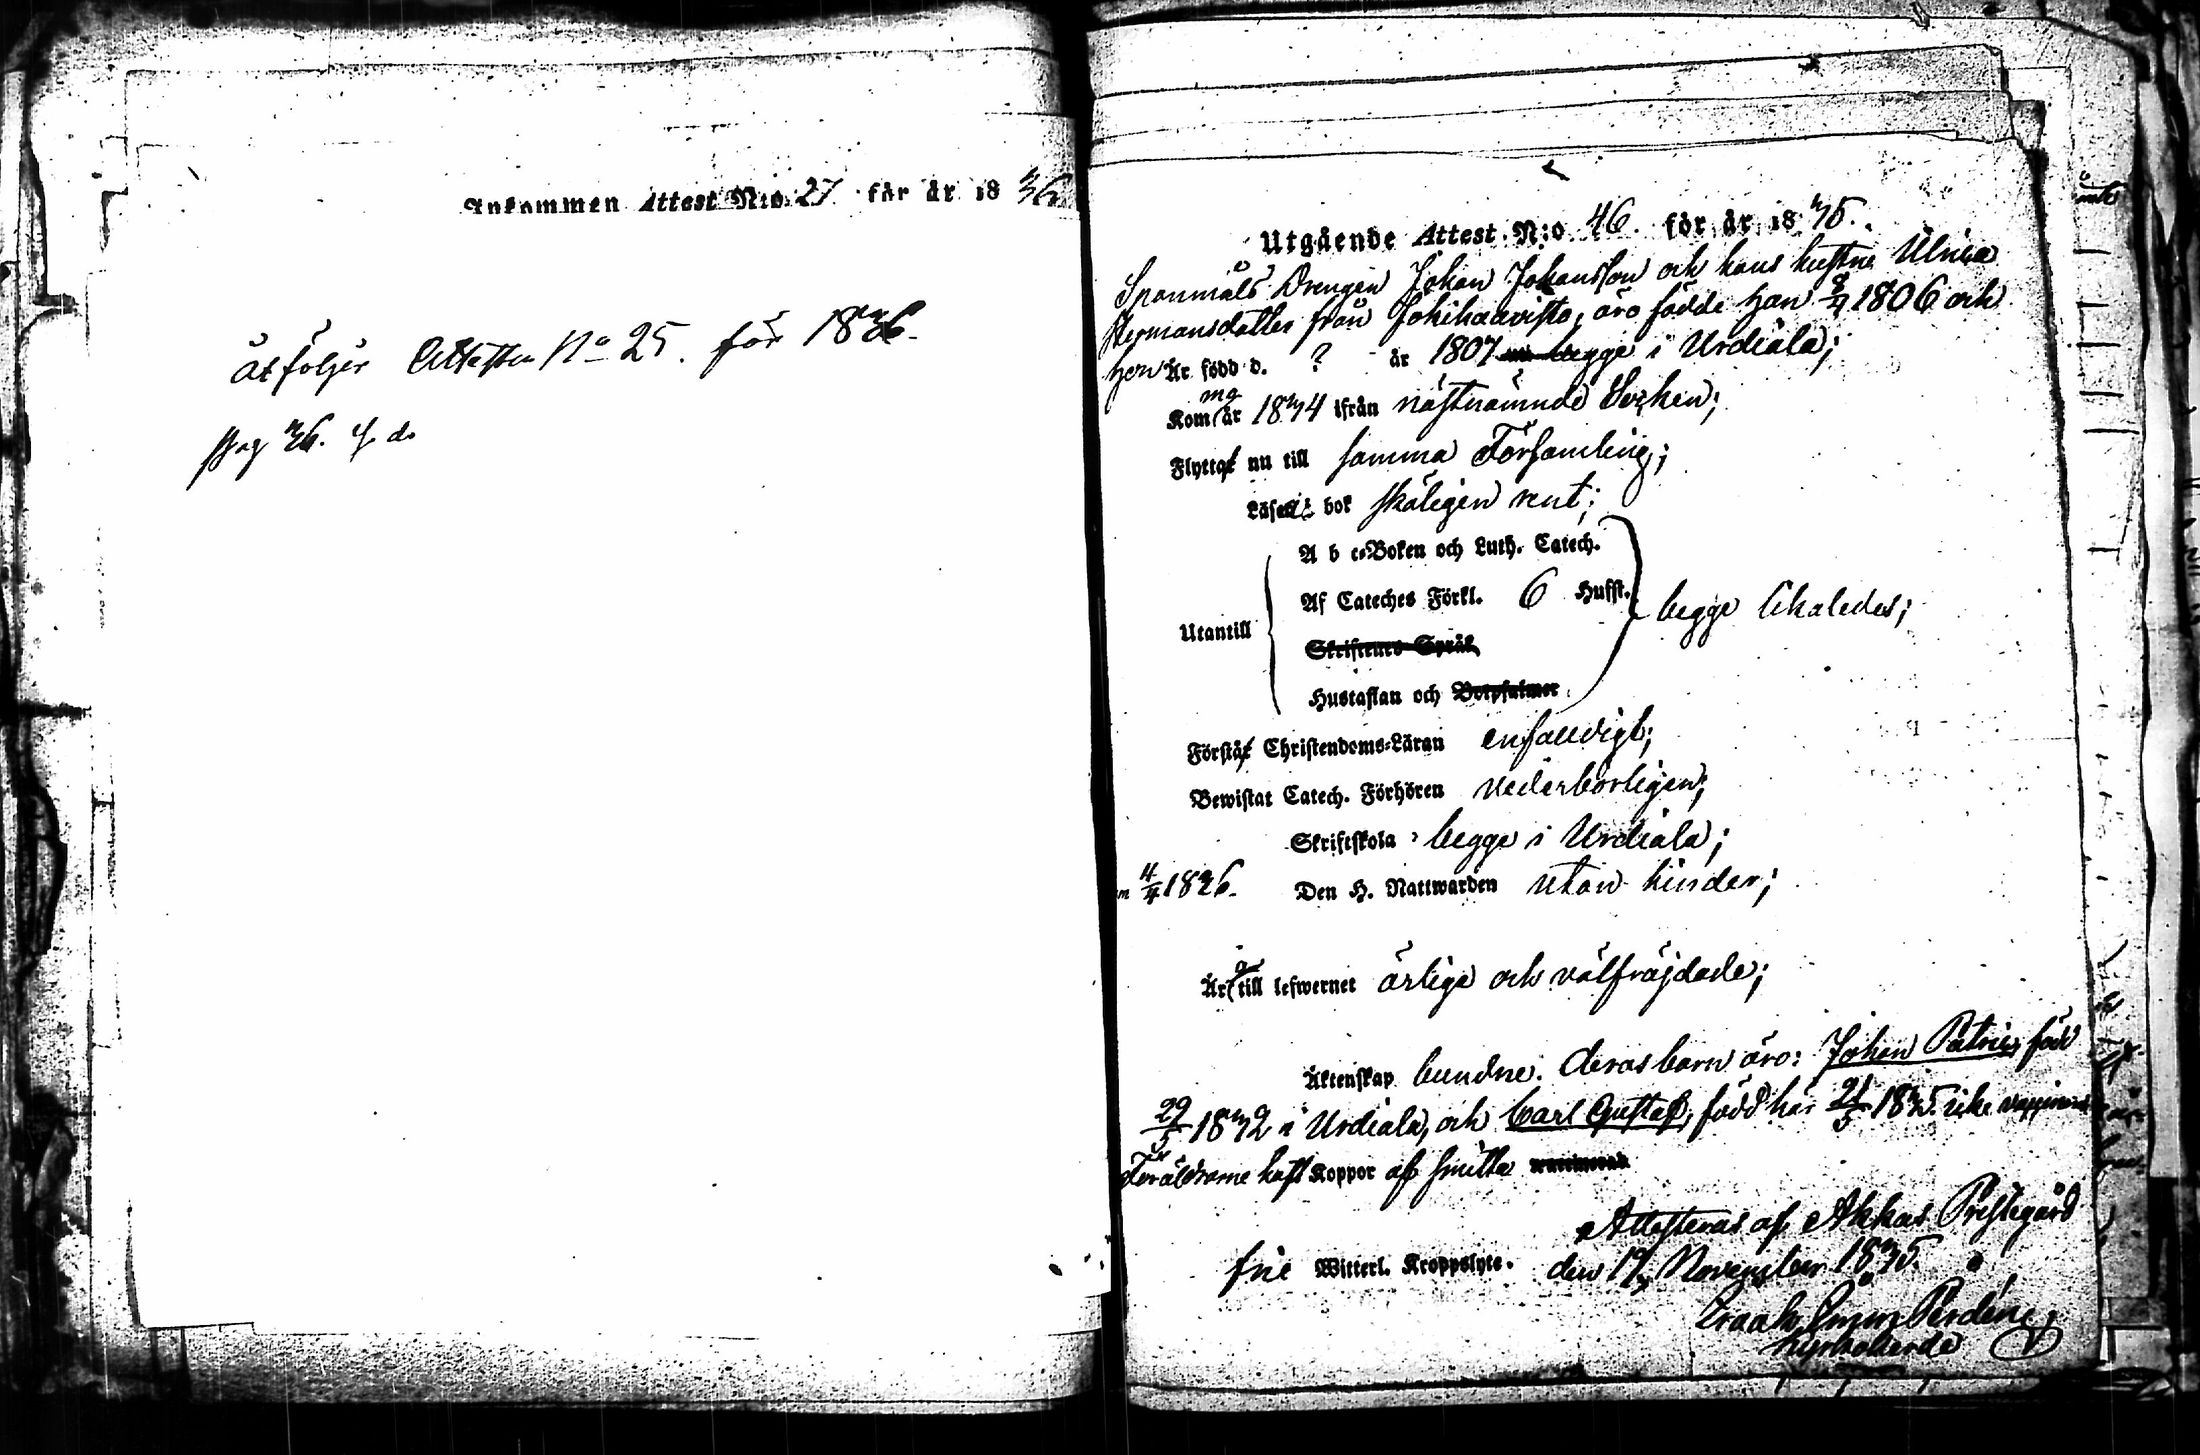 Ankommen Attest N:o 27 för år 1836
Åtföljer Attesten No 25. för 1836.
pag 36. f. d.
Utgående Attest N:o 46. för år 1835.
Spanmåls Drengen Johan Johansson och hans hustru Ulrica
Hermansdotter från äro födde han 1806 och
hon Är född d. ? år 1807 begge i Urdiala;
Kommo år 1834 ifrån nästnämnde Socken;
Flytta nu till samma Församling;
Läsa i bok skäligen rent;
A b c-Boken och Luth. Catech.
Af Cateches Förkl. 6 Hufst.
Utantill begge likaledes;
Skriftenes Språk
Hustaflan och Botpsalmer
Förstå Christendoms-Läran enfaldigt;
Bewistat Catech. Förhören vederbörligen;
Skriftskola begge i Urdiala;
4/4 1836. Den H. Nattwarden utan hinder;
Äro till lefwernet ärliga och välfräjdade;
Äktenskap bundne. Deras barn äro: Johan Patric, född
29/5 1832 i Urdiala, och Carl Gustaf, född här 21/5 1835. icke
Föräldrarne haft Koppor af smitta
Attesteras af Akkas Prestegård
frie Witterl. Kroppslyte. den 19 November 1835.